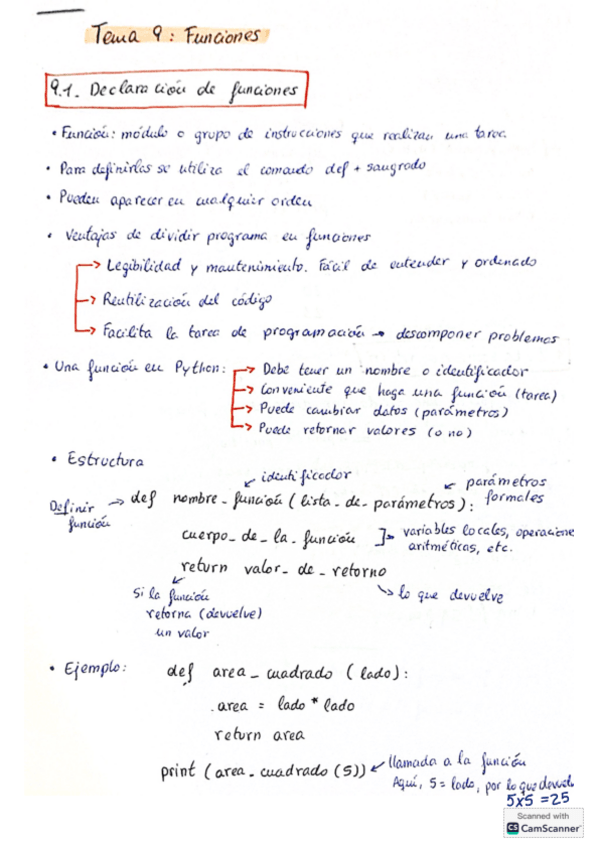 Tema 9: Funciones
9.1. Declaración de funciones
• Función: módulo o grupo de instrucciones que realizan una tarea
• Para definirlas se utiliza el comando def + sangrado
• Pueden aparecer en cualquier orden
• Ventajas de dividir programa en funciones
→ Legibilidad y mantenimiento. Fácil de entender y ordenado
→ Reutilización del código
→ Facilita la tarea de programación → descomponer problemas
• Una función en Python: → Debe tener un nombre o identificador
→ Conveniente que haga una función (tarea)
→ Puede cambiar datos (parámetros)
→ Puede retornar valores (o no)
• Estructura
identificador
parámetros formales
Definir función → def nombre_función (lista_de_parámetros):
cuerpo_de_la_función ]→ variables locales, operacione aritméticas, etc.
return valor_de_retorno
Si la función retorna (devuelve) un valor
lo que devuelve
• Ejemplo: def area_cuadrado (lado):
area = lado * lado
return area
print (area_cuadrado (5)) ← llamada a la función
Aquí, 5 = lado, por lo que devuel
5x5 = 25
Scanned with
CS CamScanner